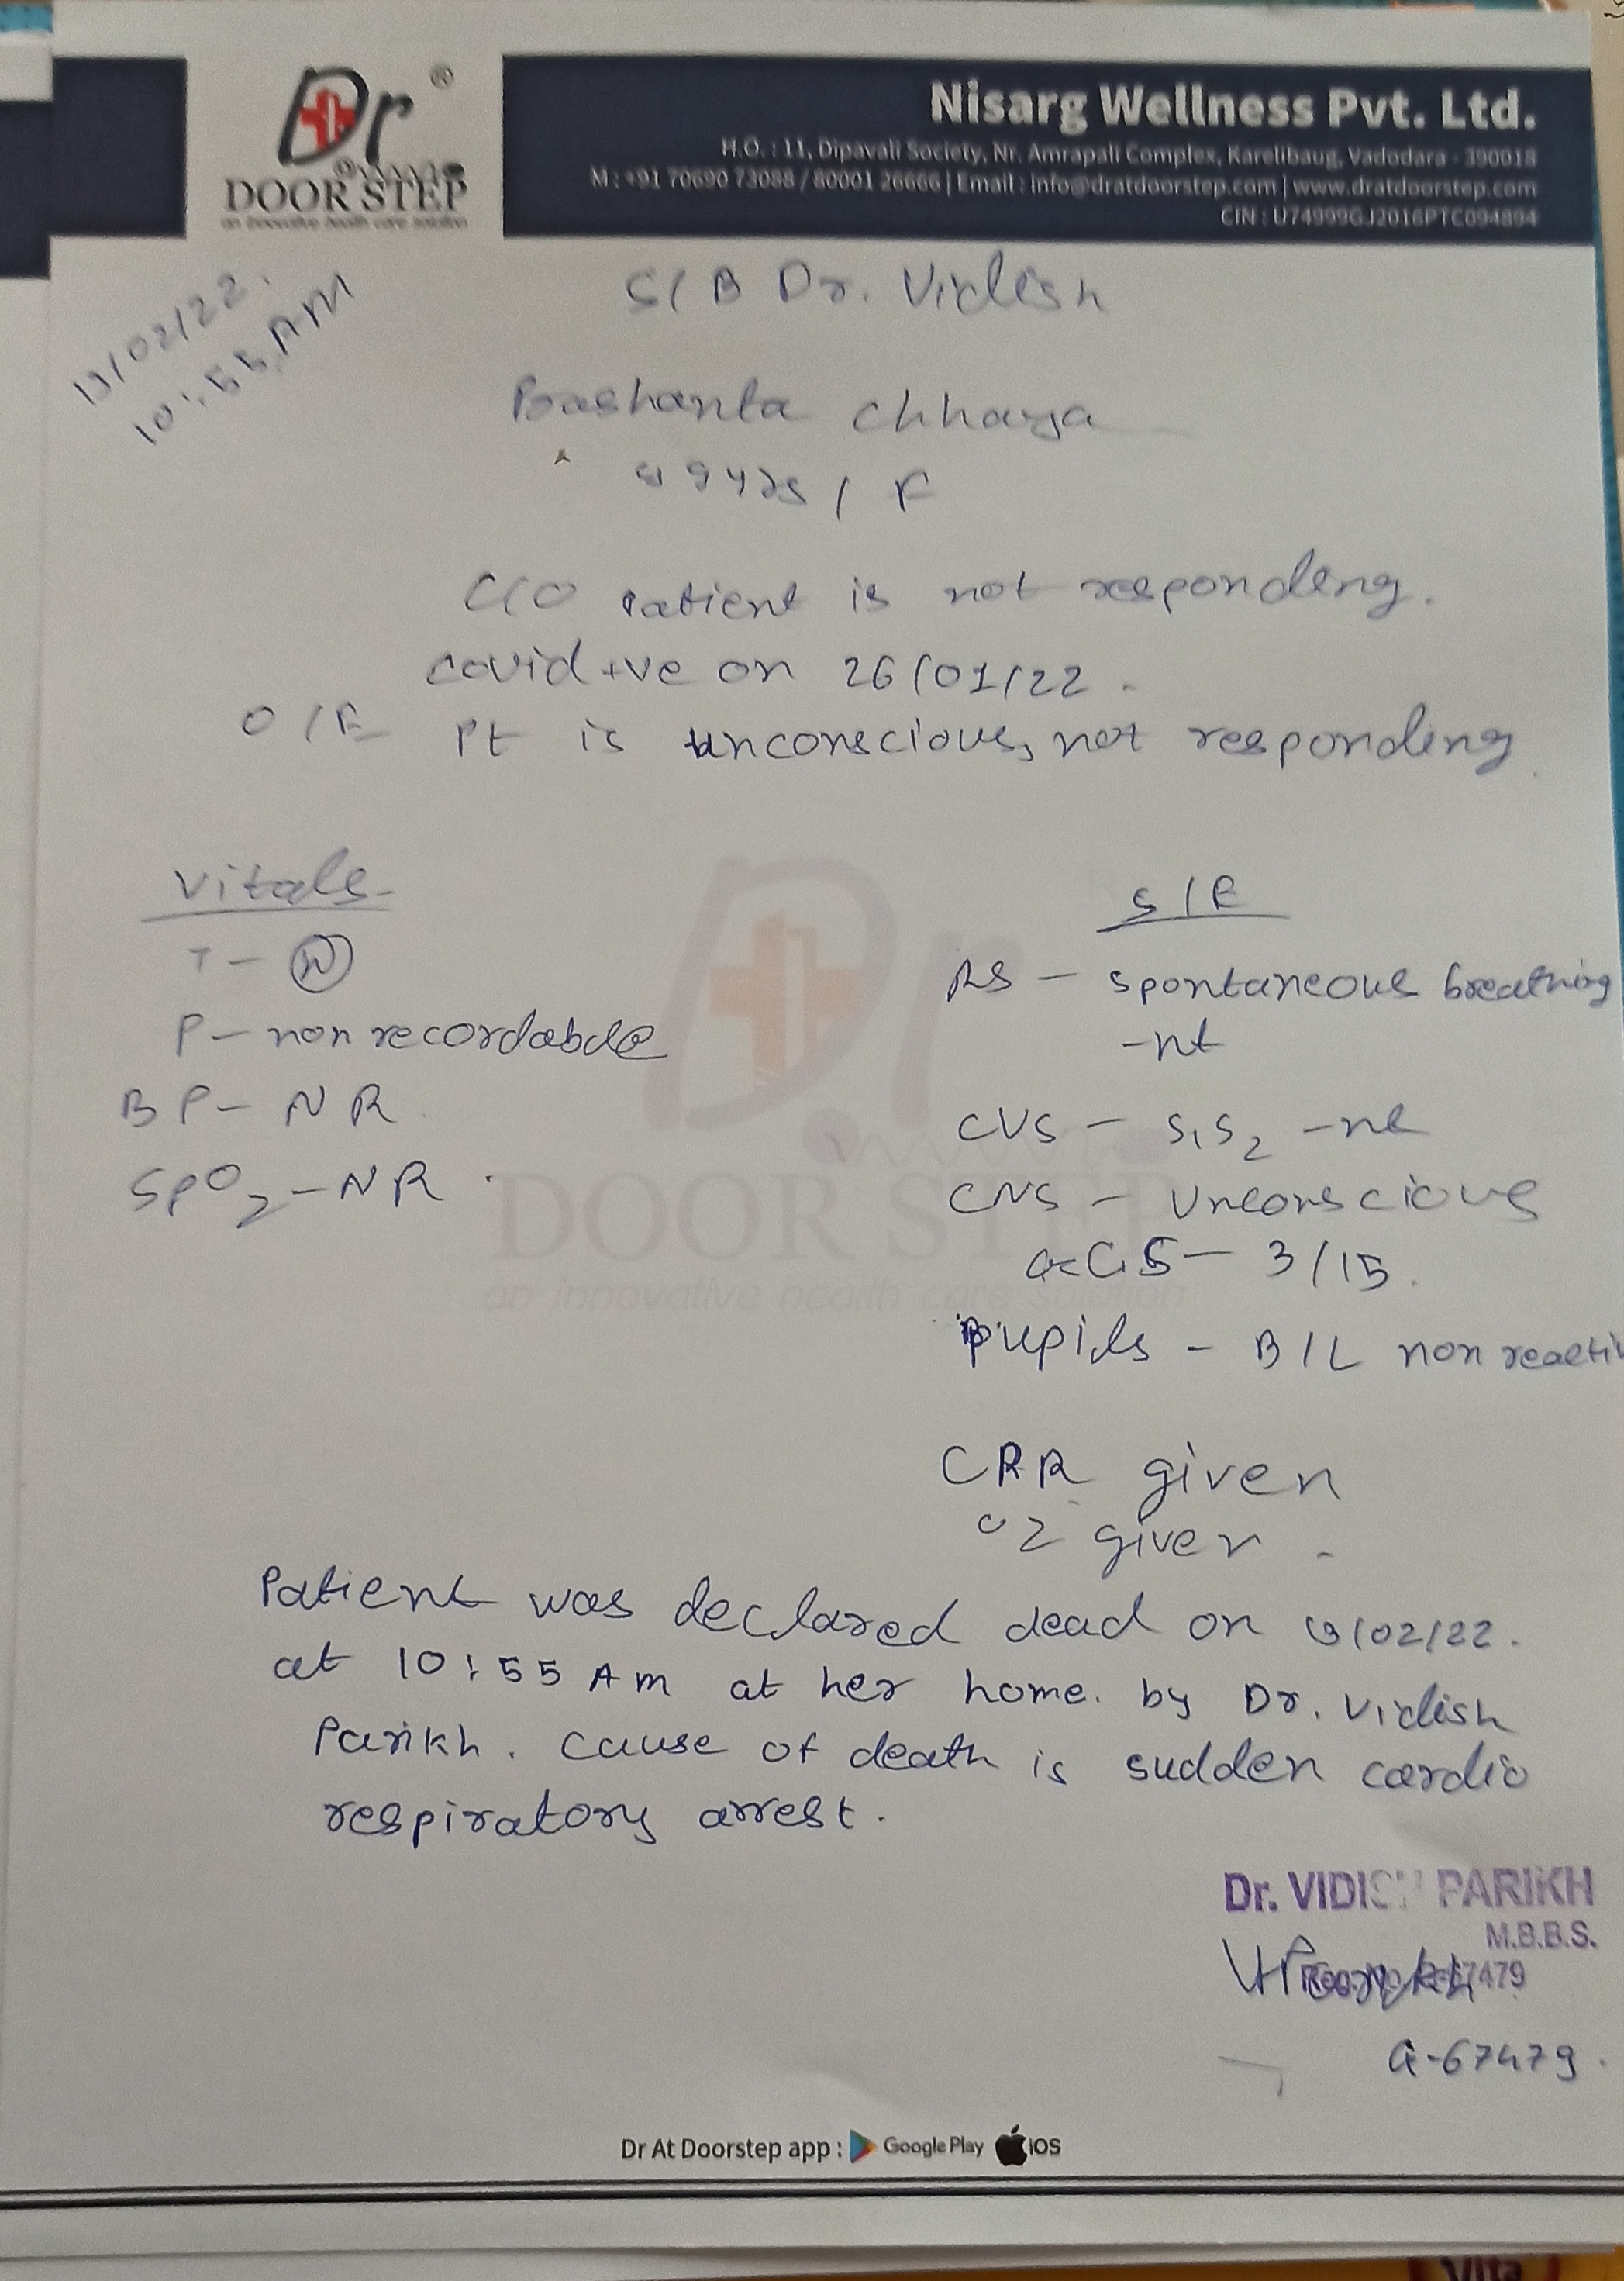 Dr ®
@
DOOR STEP
an innovative health care solution
Nisarg Wellness Pvt. Ltd.
H.O. : 11, Dipavali Society, Nr. Amrapali Complex, Karelibaug, Vadodara - 390018
M : +91 70690 73088 / 80001 26666 | Email : info@dratdoorstep.com | www.dratdoorstep.com
CIN : U74999GJ2016PTC094894
/02/22.
10:55 AM
S/B Dr. Vidish
Prashanta Chhaya
yrs / F
C/O Patient is not responding.
covid +ve on 26/01/22.
O/E Pt is unconscious, not responding.
Vitals
T - N
P - non recordable
BP - NR
SpO2 - NR
S/E
RS - spontaneous breathing
-nt
CVS - S1S2 -nt
CNS - Unconscious
GCS - 3/15.
pupils - B/L non reactiv
CPR given
O2 given.
Patient was declared dead on /02/22.
at 10:55 Am at her home. by Dr. Vidish
Parikh. cause of death is sudden cardio
respiratory arrest.
Dr. VIDISH PARIKH
M.B.B.S.
67479
G-67479.
DOOR STEP
an innovative health care solution
Dr At Doorstep app : Google Play iOS
Vita